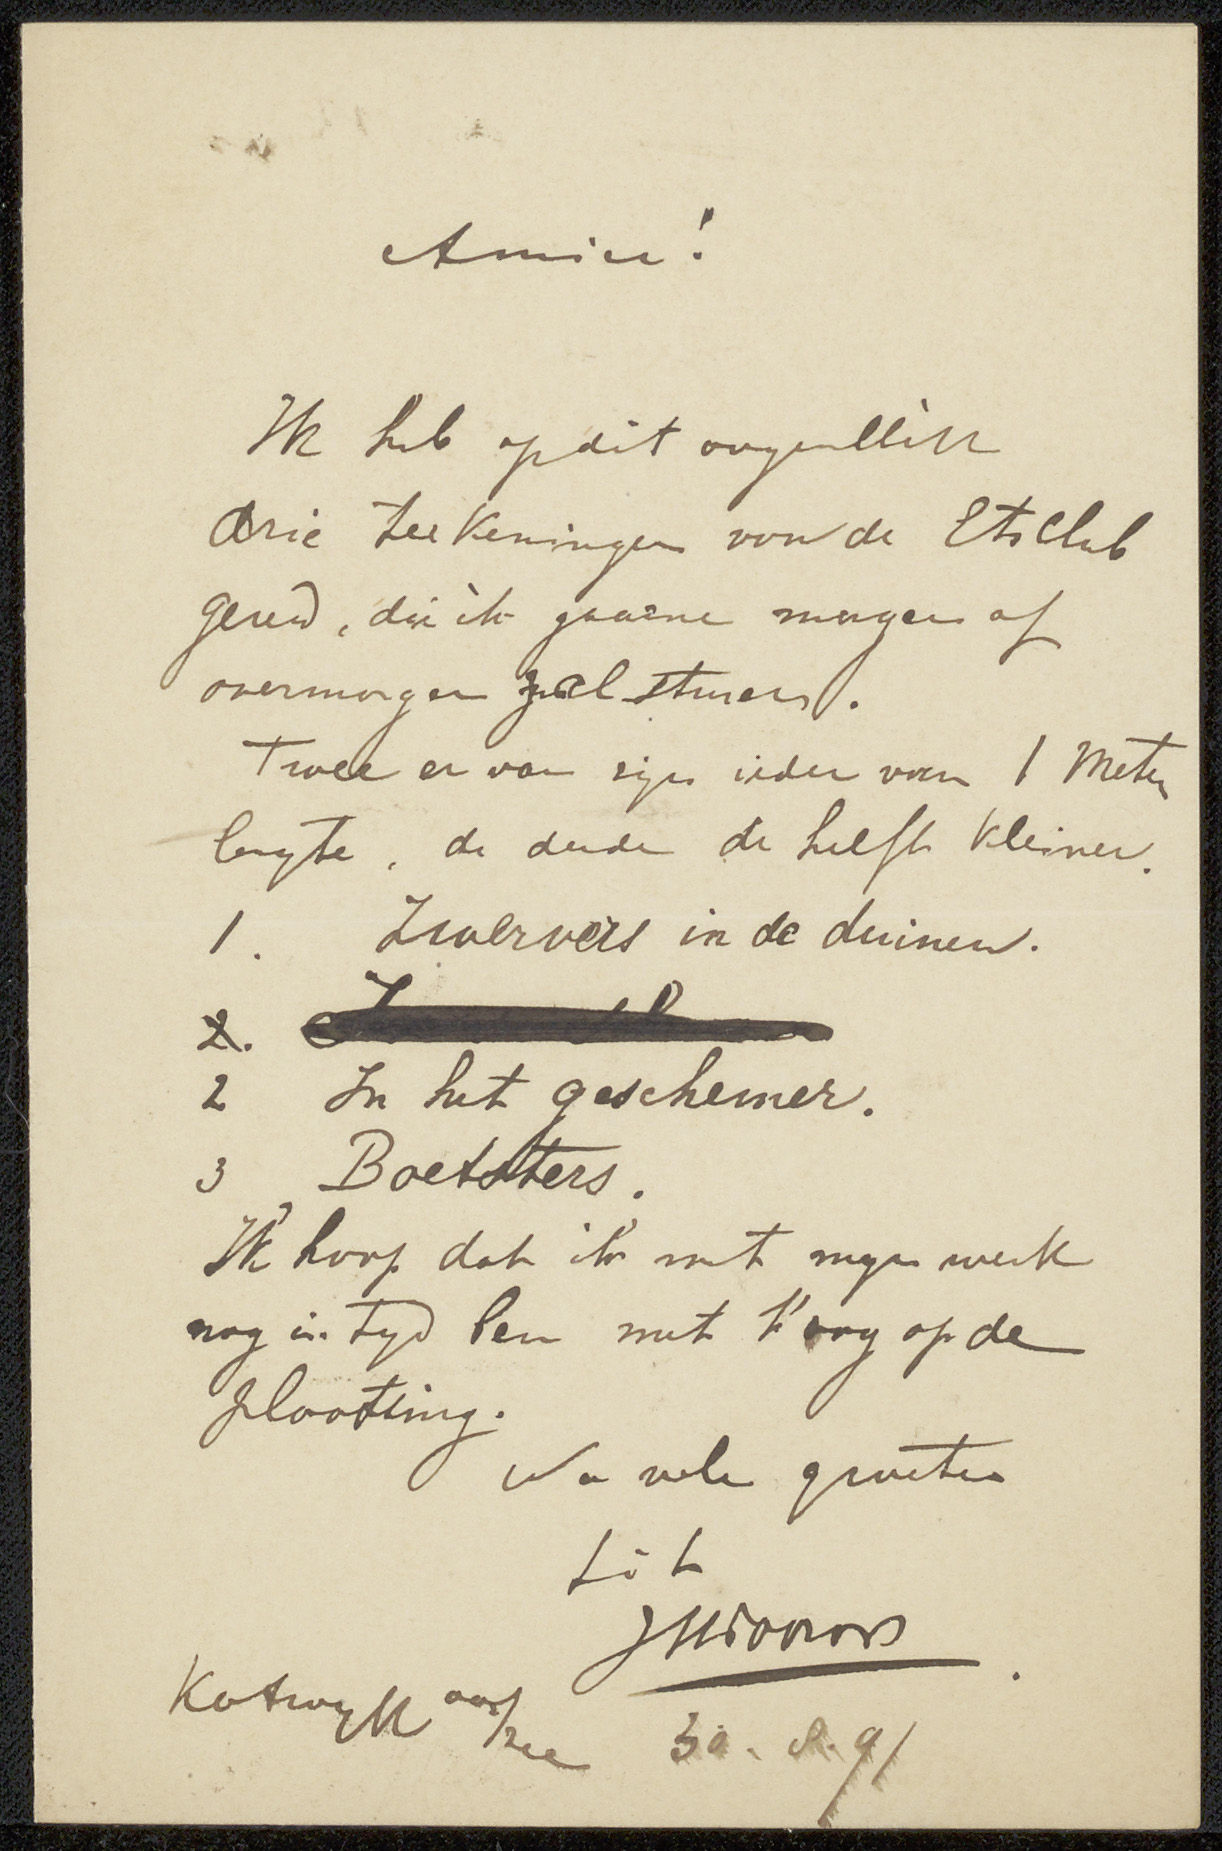 Amice!
Ik heb op dit oogenblik
drie teekeningen voor de Etsclub
gereed, die ik gaarne morgen of
overmorgen zal sturen.
Twee er van zijn ieder van 1 Meter
lengte, de derde de helft kleiner.
1. Zwervers in de duinen.
2.
2 In het geschemer.
3 Boetsters.
Ik hoop dat ik met mijn werk
nog in tijd ben met 't oog op de
plaatsing.
Na vele groeten
tàt
Katwijk aan/zee 30. 8. 91